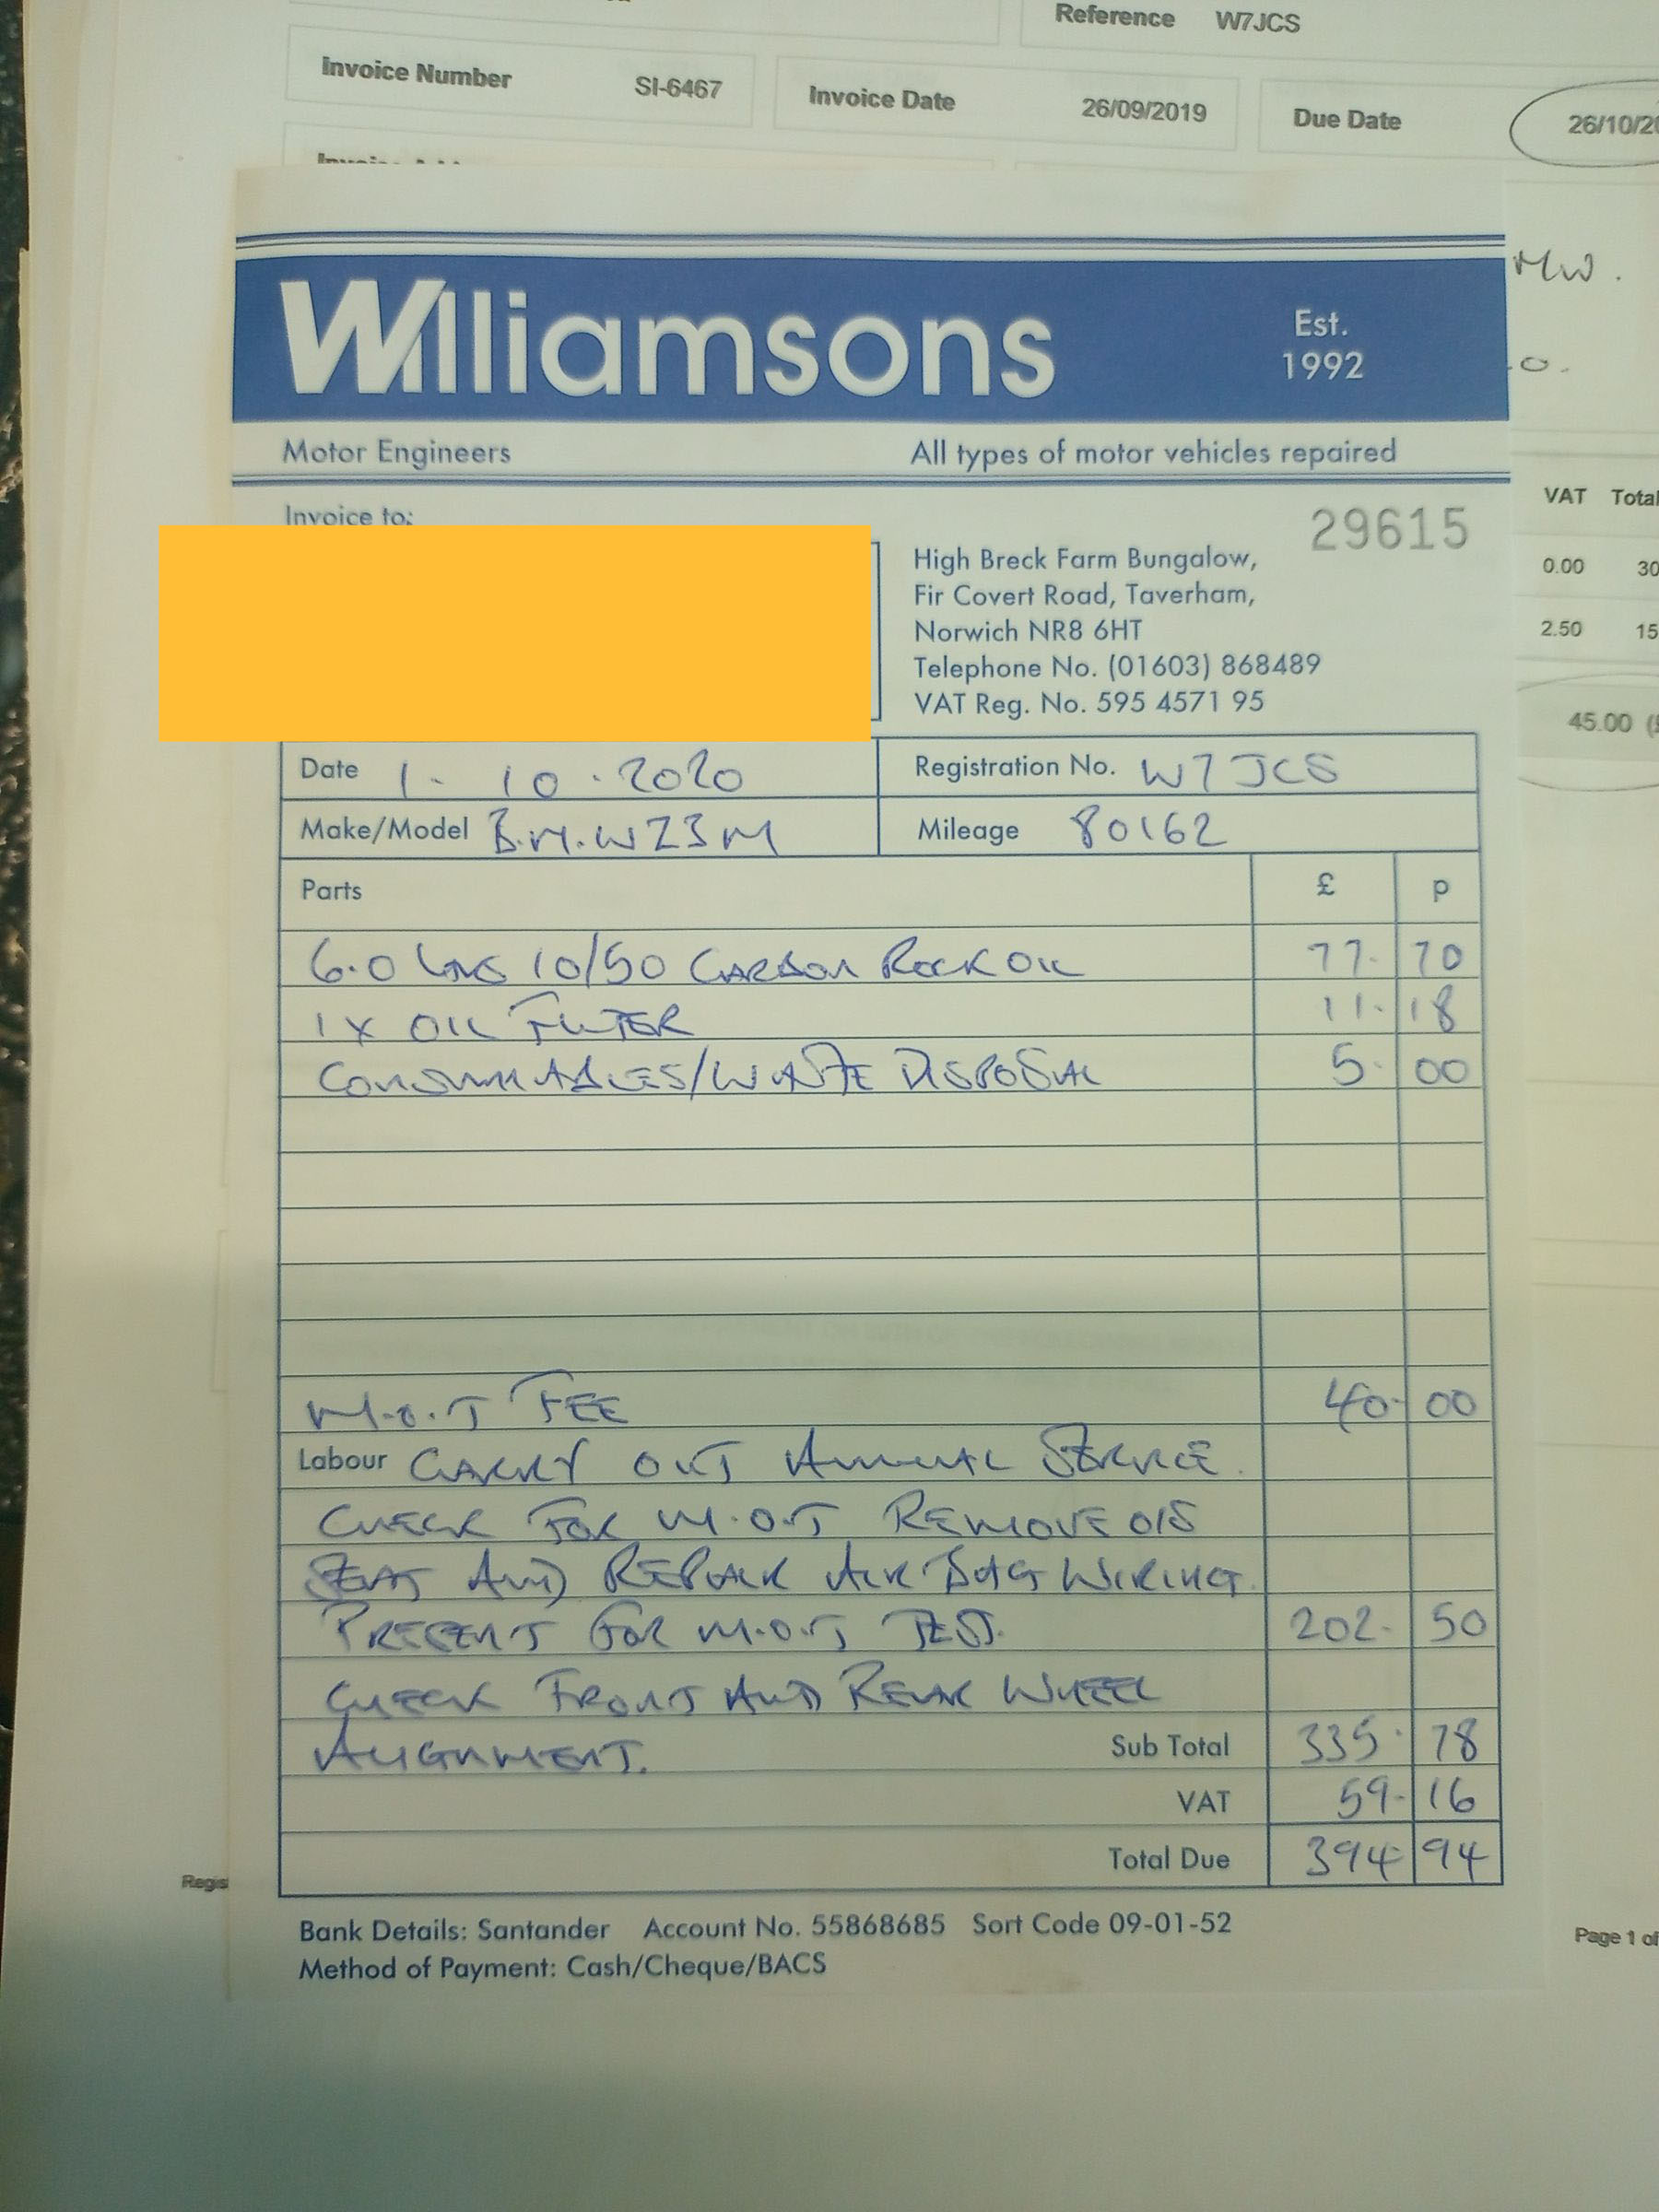 Reference W7JCS
Invoice Number SI-6467 Invoice Date 26/09/2019 Due Date 26/10/20
Williamsons
Est.
1992
MW.
o.
Motor Engineers All types of motor vehicles repaired
VAT Total
Invoice to:
29615
High Breck Farm Bungalow,
0.00 30
Fir Covert Road, Taverham,
Norwich NR8 6HT
2.50 15
Telephone No. (01603) 868489
VAT Reg. No. 595 4571 95
45.00
Date 1. 10. 2020 Registration No. W7 JCS
Make/Model B.M.W Z3M Mileage 80162
Parts £ p
6.0 LTRS 10/50 CARBON ROCK OIL 77. 70
1 X OIL FILTER 11. 18
CONSUMABLES/WASTE DISPOSAL 5. 00
M.O.T FEE 40. 00
Labour CARRY OUT ANNUAL SERVICE.
CHECK FOR M.O.T REMOVE O/S
SEAT AND REPAIR AIR BAG WIRING.
PRESENT FOR M.O.T TEST. 202. 50
CHECK FRONT AND REAR WHEEL
ALIGNMENT. Sub Total 335. 78
VAT 59. 16
Total Due 394. 94
Regis
Bank Details: Santander Account No. 55868685 Sort Code 09-01-52
Page 1 of
Method of Payment: Cash/Cheque/BACS